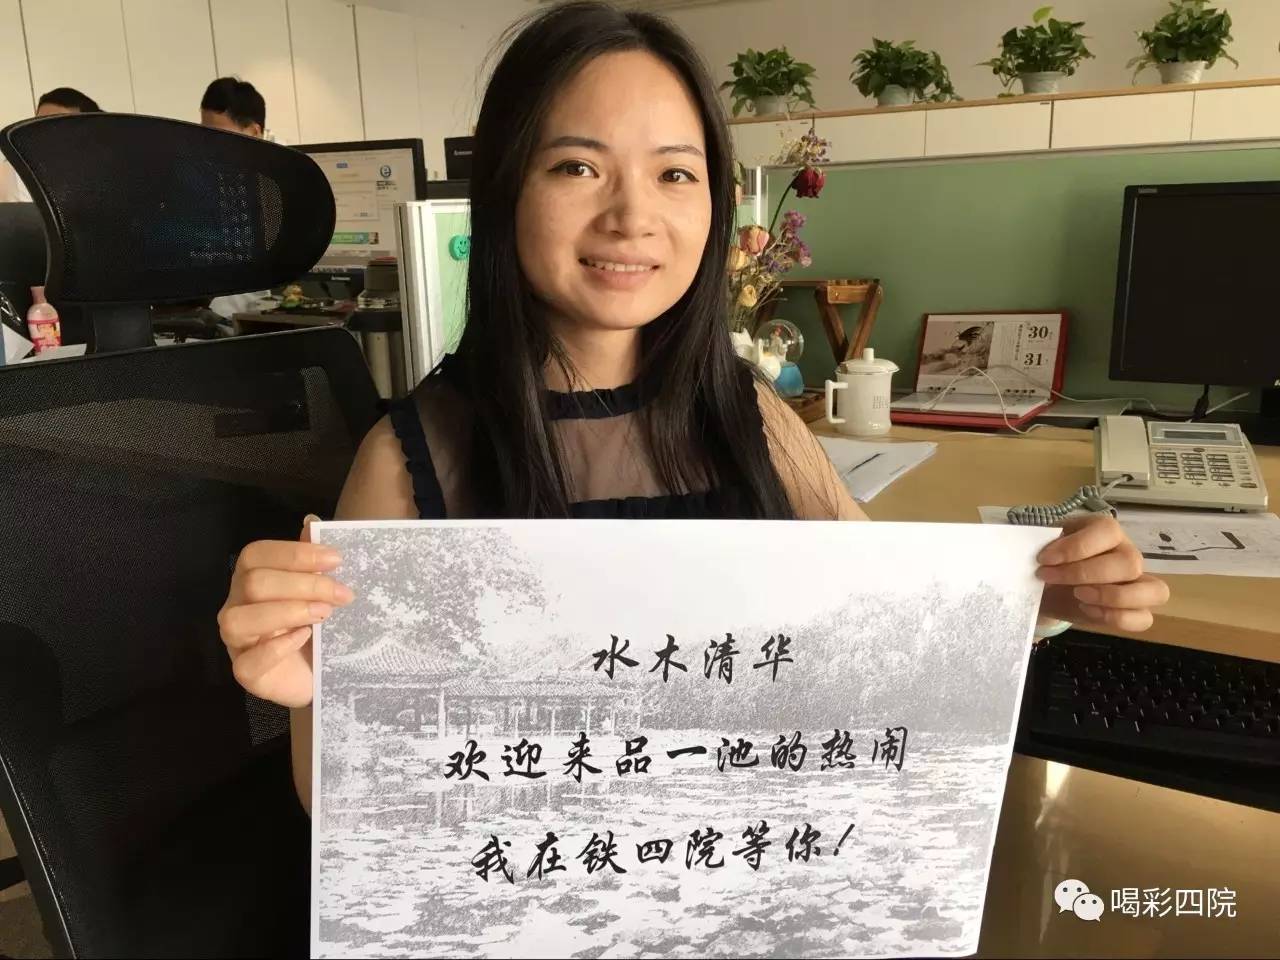 水木清华
欢迎来品一池的热闹
我在铁四院等你！
30
31
喝彩四院